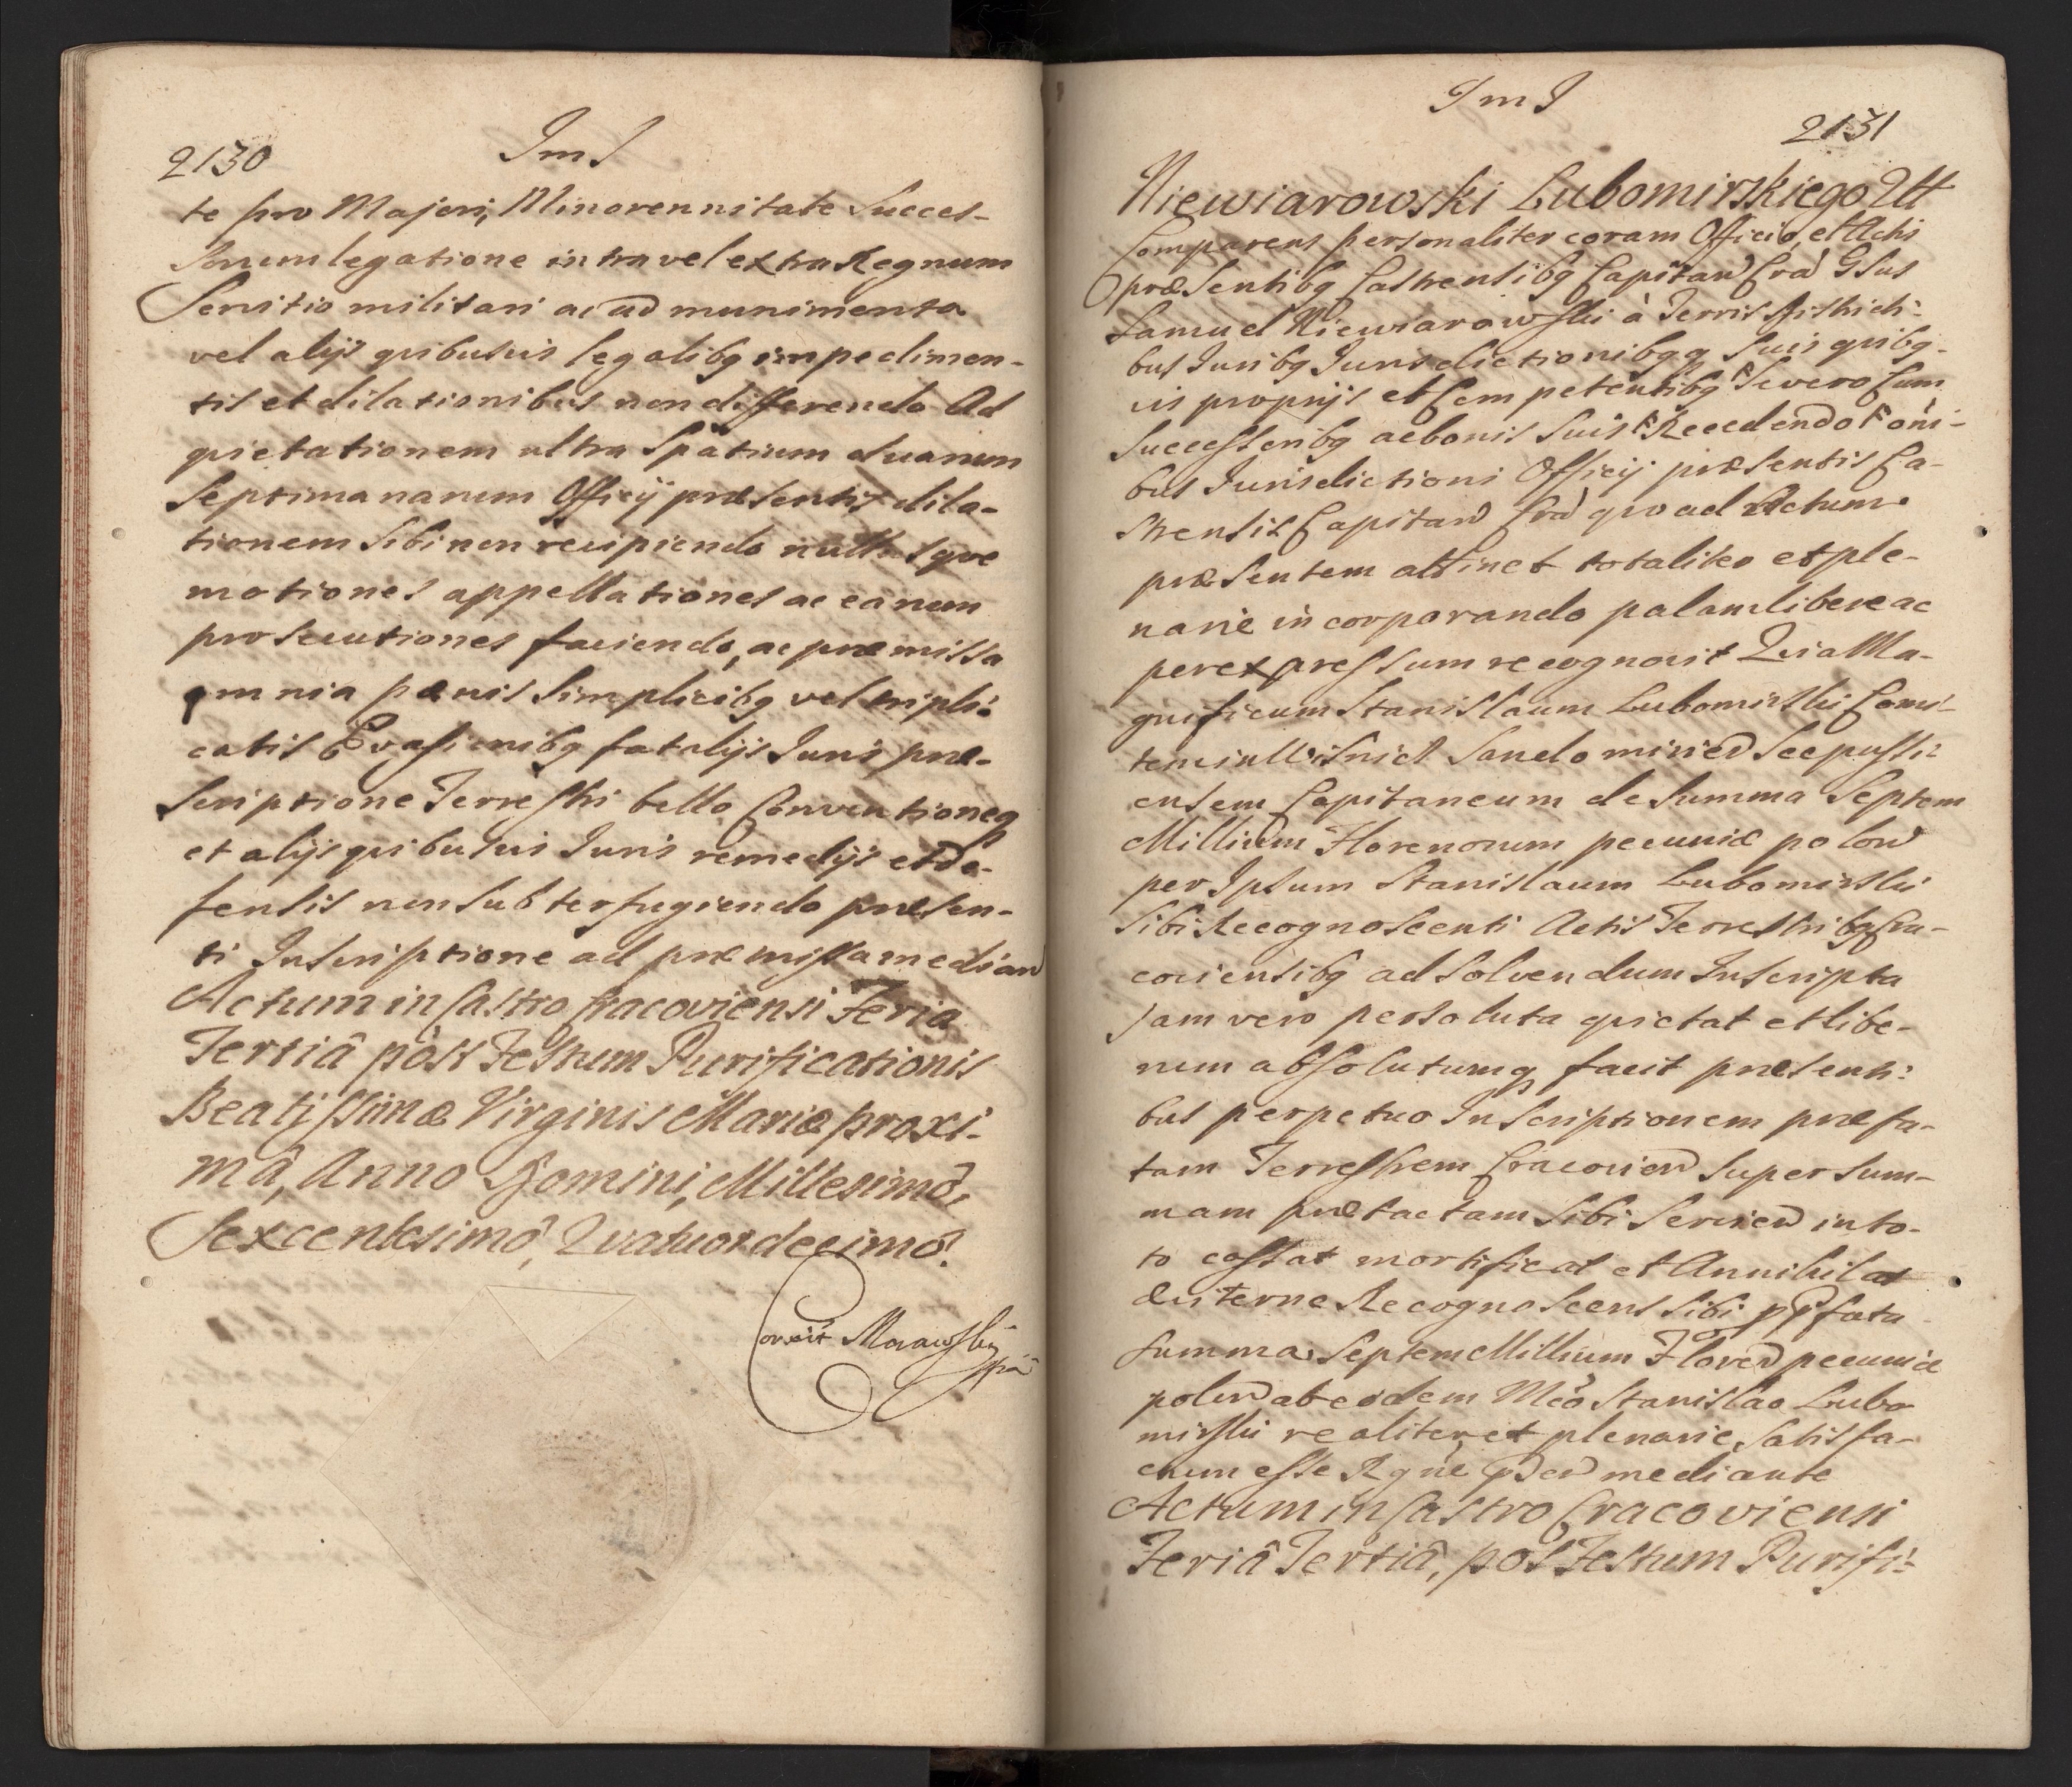 2130
ImI
te pro Majori, Minorennitate Succes-
sorum legatione intra vel extra Regnum
Servitio militari ac ad munimenta
vel alijs quibusvis legalibq impedimen-
tis et dilationibus non differendo Ad
quietationem ultra Spatium duarum
Septimanarum Officij præsentis dila-
tionem Sibi non recipiendo nullasque
motiones appellationes ac earum
prosecutiones faciendo, ac præmissa
omnia pænis Simplicibq vel tripli:
catis Evasionibq fatalijs Juris præ-
scriptione Terrestri bello Conventioneq
et alijs quibusvis Juris remedijs et de-
fensis non subterfugiendo præsen-
ti Inscriptione ad præmissa median
Actum in Castro Cracoviensi Feria
Tertiâ pòst Festum Purificationis
Beatissimæ Virginis Mariæ proxi-
mâ, Anno Domini, Millesimô,
Sexcentesimô, Quatuordecimô.
Corexit Morawski
mpia
ImI
2131
Niewiarowski Lubomirskiego Qtt
Comparens personaliter coram Officio, et Actis
præsentibq Castrensibq Capitan Cra Gsus
Samuel Niewiarowski à Terris Districti:
bus Juribq Jurisdictionibqq Suis quibq-
vis proprijs et Competentibq Severo Cum
Successoribq ac bonis Suis Recedendo oni-
bus Jurisdictioni Officij præsentis Ca-
strensis Capitan Cra quo ad Actum
præsentem attinet totaliter et ple-
narie incorporando palam libere ac
per expressum recognovit Quia Ma-
gnificum Stanislaum Lubomirski Comi-
tem in Wisnicz Sandomirien Scepusi:
ensem Capitaneum de Summa Septem
Millium Florenorum pecuniæ polon
per Ipsum Stanislaum Lubomirski
Sibi Recognoscenti Actis Terrestribq Cra-
coviensibq ad Solvendum Inscripta
jam vero persoluta quietat et libe-
rum absolutumq facit præsenti:
bus perpetuo Inscriptionem præfa-
tam Terrestrem Cracovien super sum-
mam prætactam Sibi Servien in to-
to cassat mortificat et Annihilat
Recognoscens Sibi pp fata
Summa Septem Millium Floren pecuniæ
polon ab eodem Mco Stanislao Lubo
mirski realiter et plenarie, Satisfa-
ctum esse mediante
Actum in Castro Cracoviensi
Feriâ Tertiâ, pòst Festum Purifi: